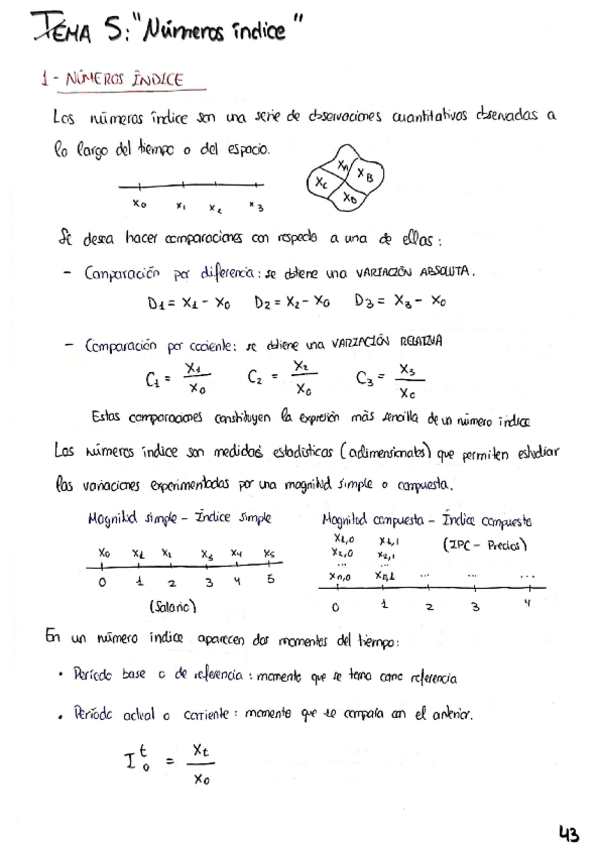 TEMA 5: "Números índice"
1 - NÚMEROS ÍNDICE
Los números índice son una serie de observaciones cuantitativas observadas a
lo largo del tiempo o del espacio.
X0 X1 X2 X3
XA XB XC XD
Se desea hacer comparaciones con respecto a una de ellas:
- Comparación por diferencia: se obtiene una VARIACIÓN ABSOLUTA.
D1 = X1 - X0 D2 = X2 - X0 D3 = X3 - X0
- Comparación por cociente: se obtiene una VARIACIÓN RELATIVA
C1 = X1/X0 C2 = X2/X0 C3 = X3/X0
Estas comparaciones constituyen la expresión más sencilla de un número índice
Los números índice son medidas estadísticas (adimensionales) que permiten estudiar
las variaciones experimentadas por una magnitud simple o compuesta.
Magnitud simple - Índice simple
X0 X1 X2 X3 X4 X5
0 1 2 3 4 5
(Salario)
Magnitud compuesta - Índice compuesto
X1,0 X1,1 (IPC - Precios)
X2,0 X2,1
... ...
Xn,0 Xn,1 ... ... ...
0 1 2 3 4
En un número índice aparecen dos momentos del tiempo:
• Período base o de referencia: momento que se toma como referencia
• Período actual o corriente: momento que se compara con el anterior.
I t 0 = Xt/X0
43